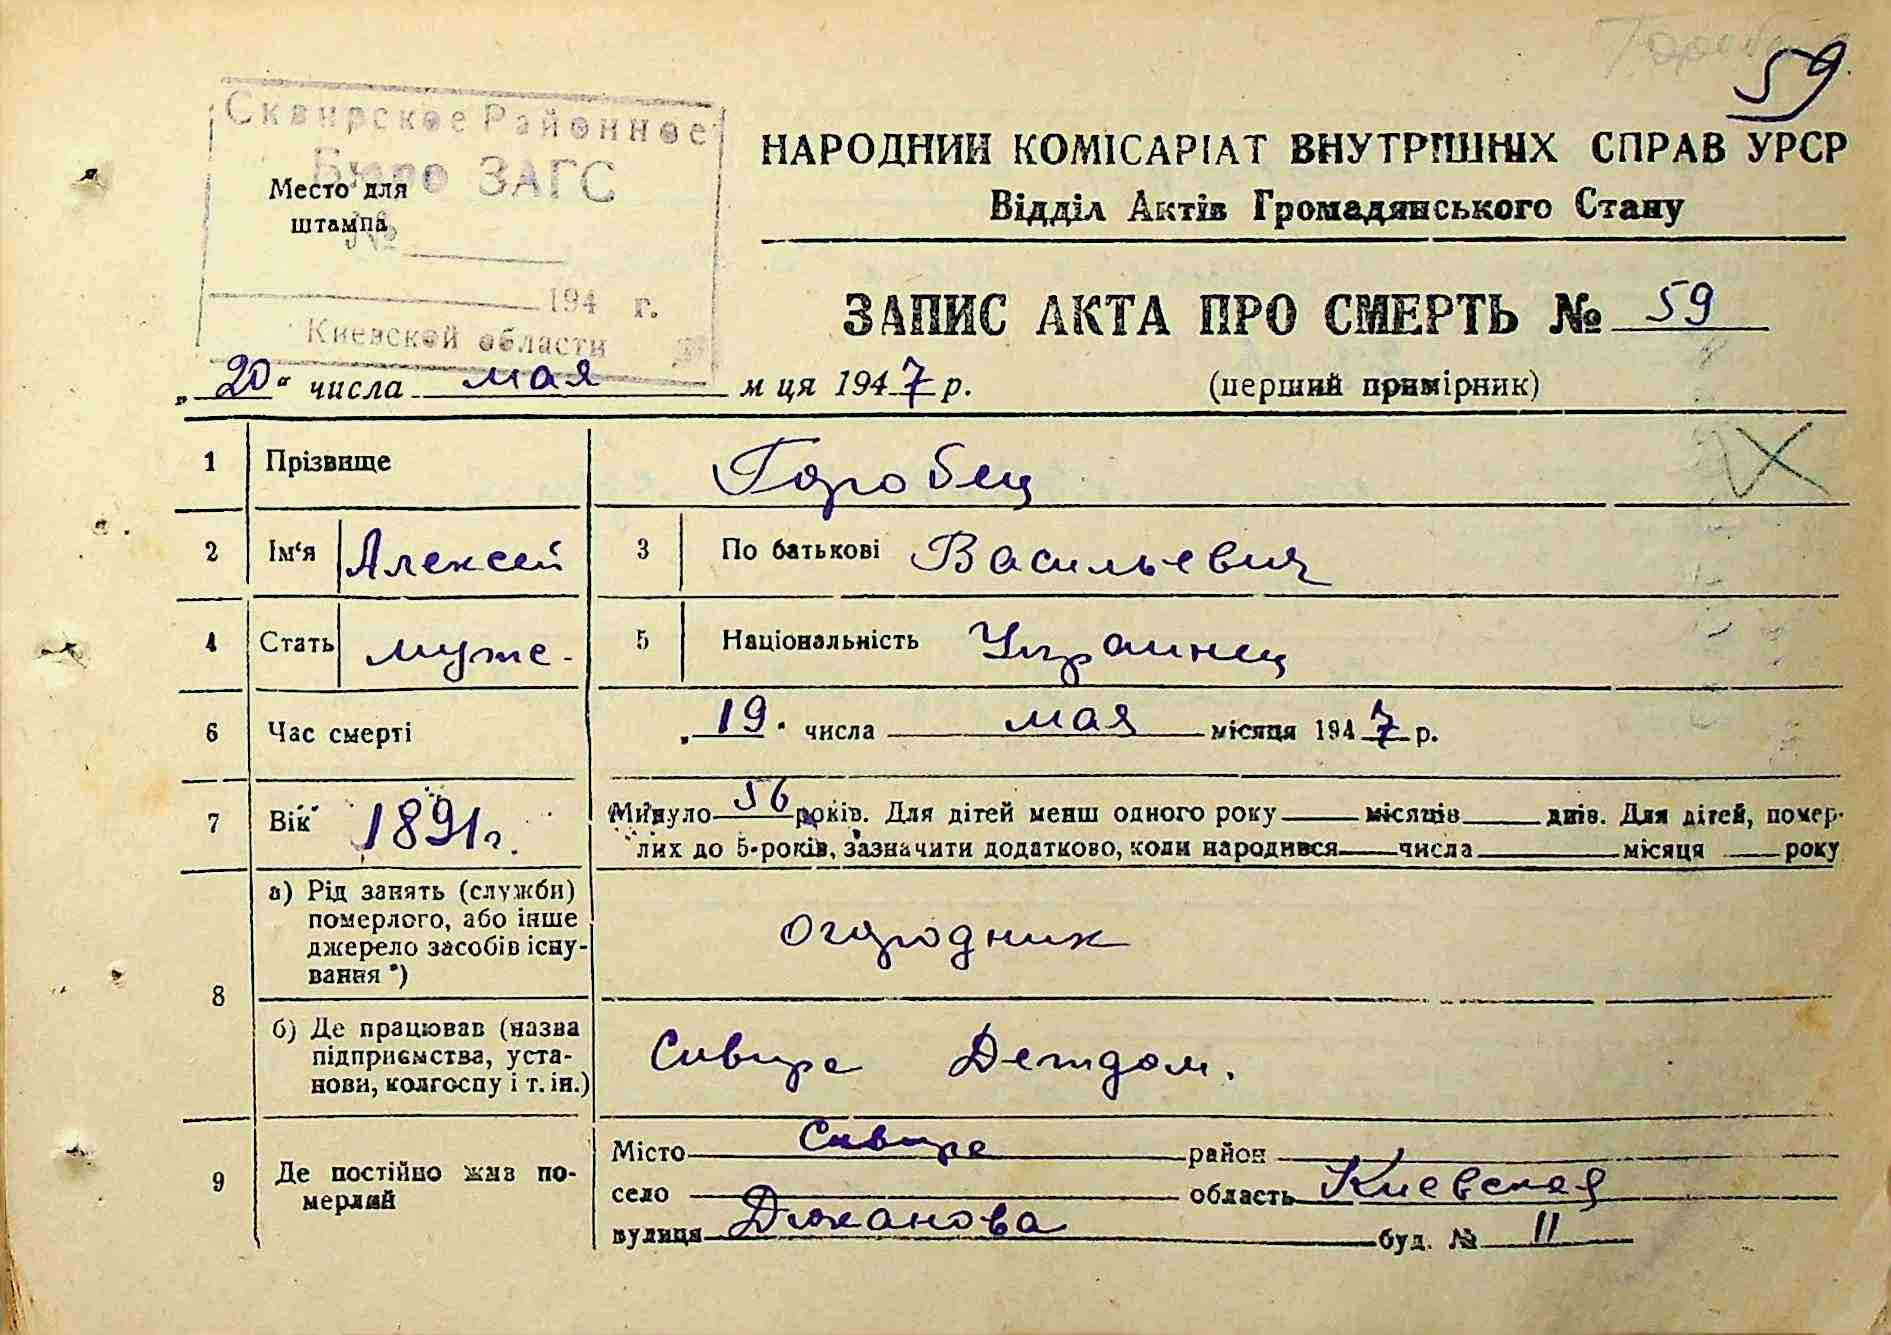 Горобец
59
Сквирское Районное
Бюро ЗАГС
Место для
штампа
№
194 г.
Киевской области
НАРОДНИЙ КОМІСАРІАТ ВНУТРІШНІХ СПРАВ УРСР
Відділ Актів Громадянського Стану
ЗАПИС АКТА ПРО СМЕРТЬ № 59
„20“ числа мая м ця 1947 р. (перший примірник)
1 Прізвище Горобец
2 Ім‘я Алексей 3 По батькові Васильевич
4 Стать муже. 5 Національність Украинец
6 Час смерті „19“ числа мая місяця 1947 р.
7 Вік 1891 г. Минуло 56 років. Для дітей менш одного року місяців днів. Для дітей, помер-
лих до 5-років, зазначити додатково, коли народився числа місяця року
8
а) Рід занять (служби)
померлого, або інше
джерело засобів існу-
вання *)
огородник
б) Де працював (назва
підприємства, уста-
нови, колгоспу і т. ін.)
Сквира Детдом.
9 Де постійно жив по-
мерлий
Місто Сквира район
село область Киевская
вулиця Дюканова буд. № 11